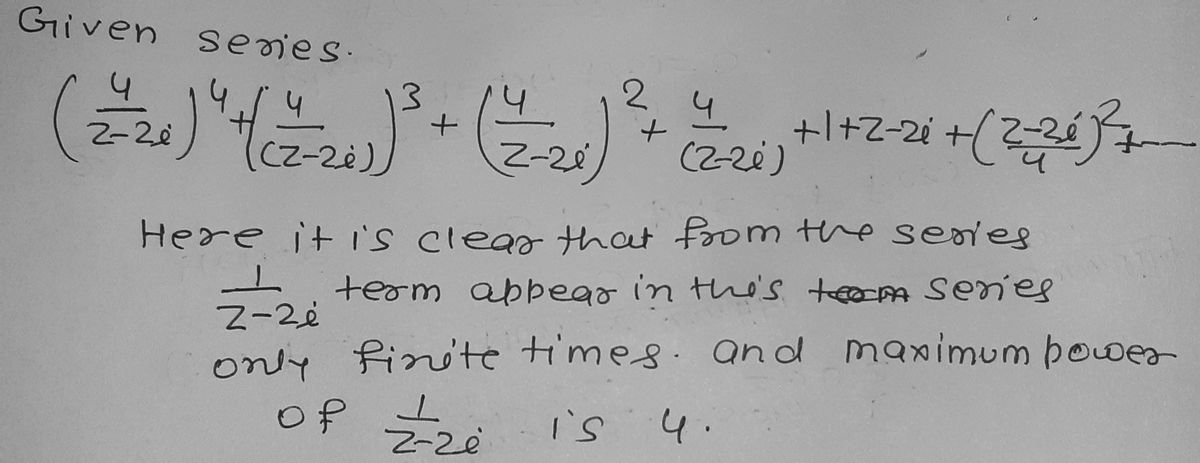 Given series.
(4/(z-2i))^4 + (4/((z-2i)))^3 + (4/(z-2i))^2 + 4/(z-2i) + 1 + z-2i + ((z-2i)/4)^2 + ----
Here it is clear that from the series
1/(z-2i) term appear in this series
only finite times. and maximum power
of 1/(z-2i) is 4.